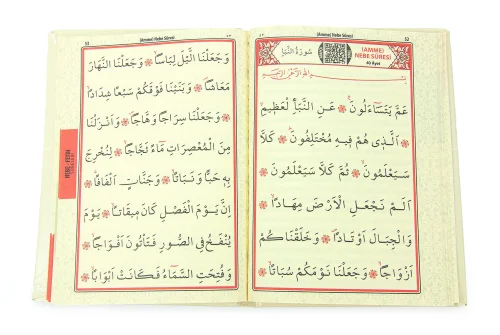 (Amme) Nebe Sûresi
52
سُورَةُ النَّبَأِ
(AMME)
NEBE SÛRESİ
40 Ayet
عَمَّ يَتَسَٓاءَلُونَۚ ❁ عَنِ النَّبَأِ الْعَظ۪يمِۙ
❁ اَلَّذ۪ي هُمْ ف۪يهِ مُخْتَلِفُونَۜ ❁ كَلَّا
سَيَعْلَمُونَۙ ❁ ثُمَّ كَلَّا سَيَعْلَمُونَ ❁
اَلَمْ نَجْعَلِ الْاَرْضَ مِهَادًاۙ ❁
وَالْجِبَالَ اَوْتَادًاۖ ❁ وَخَلَقْنَاكُمْ
اَزْوَاجًاۙ ❁ وَجَعَلْنَا نَوْمَكُمْ سُبَاتًاۙ ❁
53
(Amme) Nebe Sûresi
وَجَعَلْنَا الَّيْلَ لِبَاسًاۙ ❁ وَجَعَلْنَا النَّهَارَ
مَعَاشًاۖ ❁ وَبَنَيْنَا فَوْقَكُمْ سَبْعًا شِدَادًاۙ
❁ وَجَعَلْنَا سِرَاجًا وَهَّاجًاۖ ❁ وَاَنْزَلْنَا
مِنَ الْمُعْصِرَاتِ مَٓاءً ثَجَّاجًاۙ ❁ لِنُخْرِجَ
بِه۪ حَبًّا وَنَبَاتًاۙ ❁ وَجَنَّاتٍ اَلْفَافًاۜ ❁
اِنَّ يَوْمَ الْفَصْلِ كَانَ م۪يقَاتًاۙ ❁ يَوْمَ
يُنْفَخُ فِي الصُّورِ فَتَأْتُونَ اَفْوَاجًاۙ ❁
وَفُتِحَتِ السَّمَٓاءُ فَكَانَتْ اَبْوَابًاۙ ❁